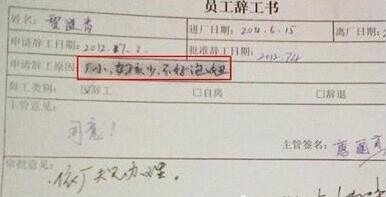 员工辞工书
姓名: 进厂日期: 2011.6.15 离厂日期:
申请辞工日期: 2012. 7. 2. 批准辞工日期: 2012.7/4
申请辞工原因: 厂小,女孩少,不好泡妞
辞工类别: ☑辞工 □自离 □辞退
主管意见:
同意!
主管签名:
审批意见:
依厂规办理。